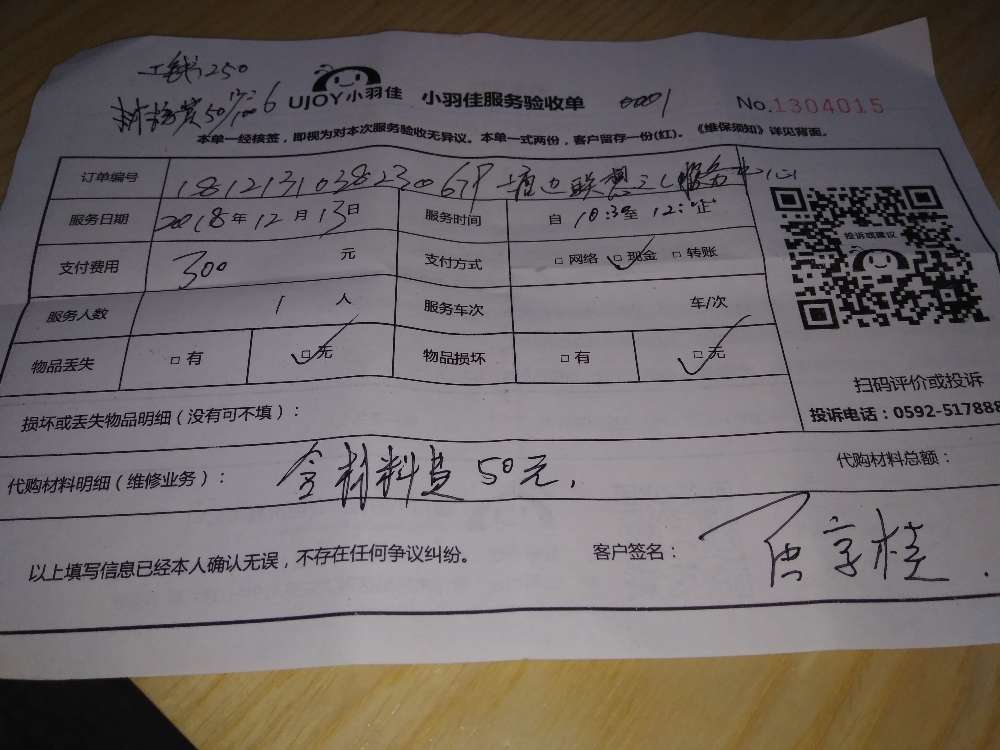 工钱250
材料费50
UJOY小羽佳 小羽佳服务验收单 No.1304015
本单一经核签，即视为对本次服务验收无异议。本单一式两份，客户留存一份(红)。《维保须知》详见背面。
订单编号
服务日期 2018年12月13日 服务时间 自10:30至12:
支付费用 300元 支付方式 □网络 □现金 □转账
投诉或建议
服务人数 1人 服务车次 车/次
物品丢失 □有 □无 物品损坏 □有 □无
扫码评价或投诉
投诉电话：0592-517888
损坏或丢失物品明细（没有可不填）：
代购材料明细（维修业务）： 含材料费50元. 代购材料总额：
以上填写信息已经本人确认无误，不存在任何争议纠纷。 客户签名：